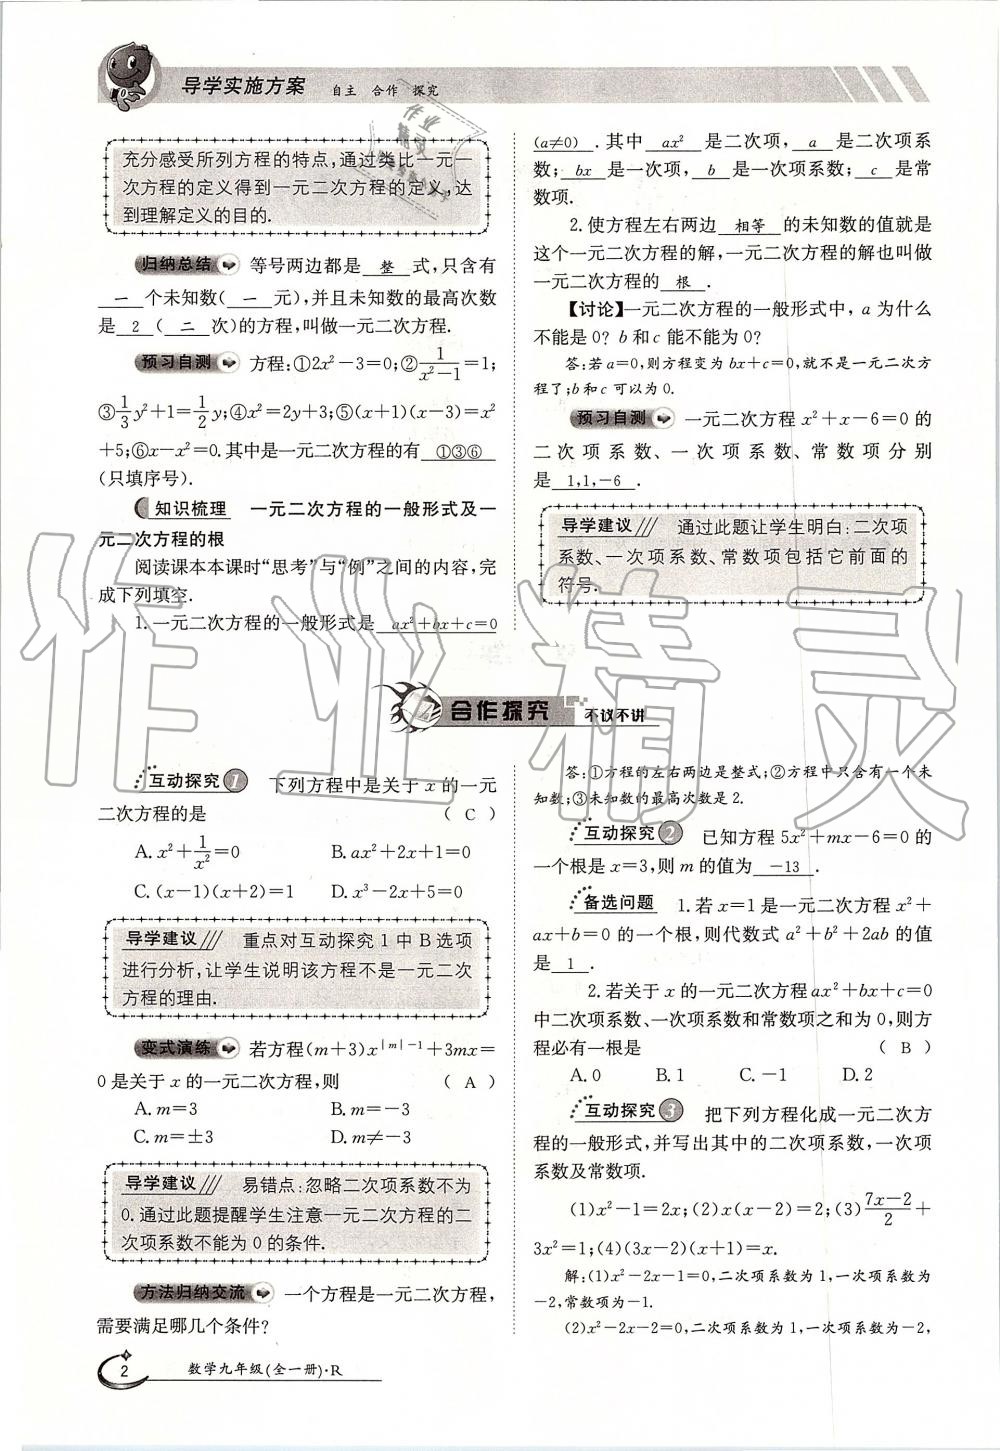 导学实施方案 自主 合作 探究
充分感受所列方程的特点,通过类比一元一
次方程的定义得到一元二次方程的定义,达
到理解定义的目的.
归纳总结 等号两边都是 整 式,只含有
一 个未知数( 一 元),并且未知数的最高次数
是 2 ( 二 次)的方程,叫做一元二次方程.
预习自测 方程:①2x²-3=0;②1/(x²-1)=1;
③1/3y²+1=1/2y;④x²=2y+3;⑤(x+1)(x-3)=x²
+5;⑥x-x²=0.其中是一元二次方程的有 ①③⑥
(只填序号).
知识梳理 一元二次方程的一般形式及一
元二次方程的根
阅读课本本课时“思考”与“例”之间的内容,完
成下列填空.
1.一元二次方程的一般形式是 ax²+bx+c=0
(a≠0) .其中 ax² 是二次项, a 是二次项系
数; bx 是一次项, b 是一次项系数; c 是常
数项.
2.使方程左右两边 相等 的未知数的值就是
这个一元二次方程的解,一元二次方程的解也叫做
一元二次方程的 根 .
【讨论】一元二次方程的一般形式中,a 为什么
不能是0? b 和 c 能不能为0?
答:若a=0,则方程变为bx+c=0,就不是一元二次方
程了;b和c可以为0.
预习自测 一元二次方程 x²+x-6=0 的
二次项系数、一次项系数、常数项分别
是 1,1,-6 .
导学建议 通过此题让学生明白:二次项
系数、一次项系数、常数项包括它前面的
符号.
合作探究 不议不讲
互动探究1 下列方程中是关于 x 的一元
二次方程的是 ( C )
A.x²+1/x²=0 B.ax²+2x+1=0
C.(x-1)(x+2)=1 D.x³-2x+5=0
导学建议 重点对互动探究1中B选项
进行分析,让学生说明该方程不是一元二次
方程的理由.
变式演练 若方程(m+3)x^(|m|-1)+3mx=
0是关于 x 的一元二次方程,则 ( A )
A.m=3 B.m=-3
C.m=±3 D.m≠-3
导学建议 易错点:忽略二次项系数不为
0.通过此题提醒学生注意一元二次方程的二
次项系数不能为0的条件.
方法归纳交流 一个方程是一元二次方程,
需要满足哪几个条件?
答:①方程的左右两边是整式;②方程中只含有一个未
知数;③未知数的最高次数是2.
互动探究2 已知方程 5x²+mx-6=0 的
一个根是 x=3,则 m 的值为 -13 .
备选问题 1.若 x=1 是一元二次方程 x²+
ax+b=0 的一个根,则代数式 a²+b²+2ab 的值
是 1 .
2.若关于 x 的一元二次方程 ax²+bx+c=0
中二次项系数、一次项系数和常数项之和为0,则方
程必有一根是 ( B )
A.0 B.1 C.-1 D.2
互动探究3 把下列方程化成一元二次方
程的一般形式,并写出其中的二次项系数,一次项
系数及常数项.
(1)x²-1=2x;(2)x(x-2)=2;(3)(7x-2)/2+
3x²=1;(4)(3x-2)(x+1)=x.
解:(1)x²-2x-1=0,二次项系数为1,一次项系数为
-2,常数项为-1.
(2)x²-2x-2=0,二次项系数为1,一次项系数为-2,
2 数学九年级(全一册)·R
作业精灵